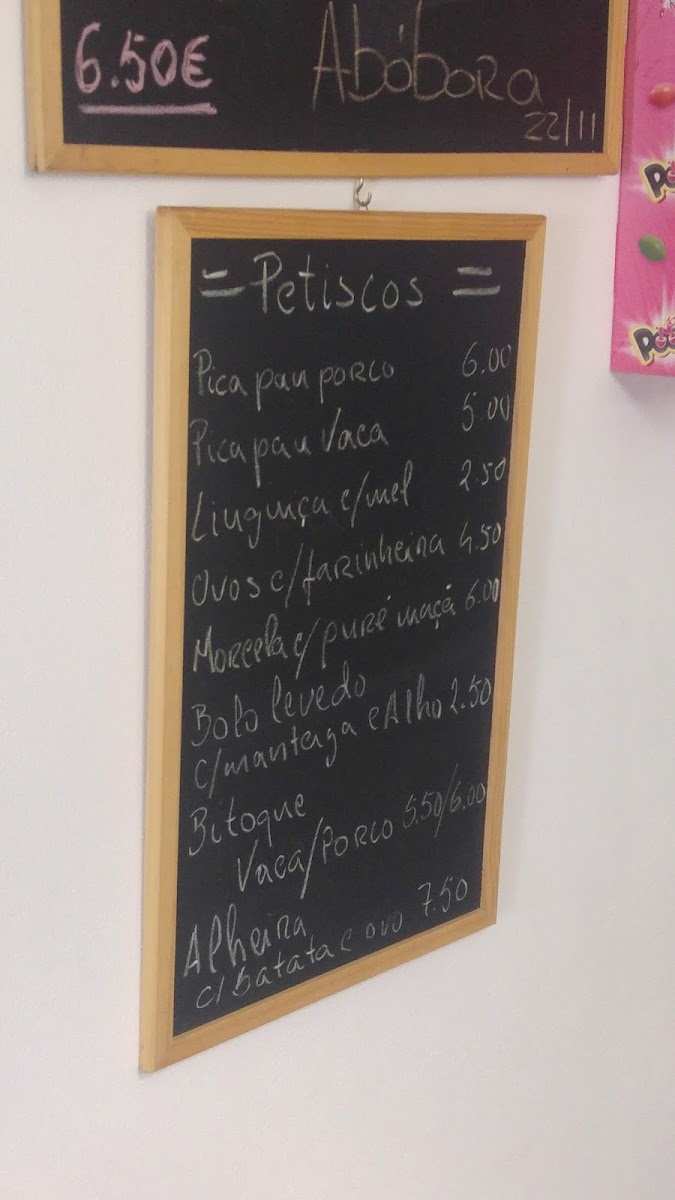 6.50€
Abóbora
22/11
= Petiscos =
Pica pau porco 6.00
Pica pau Vaca 5.00
Linguiça c/mel 2.50
Ovos c/farinheira 4.50
Morcela c/ puré maçã 6.00
Bolo levedo
c/manteiga e Alho 2.50
Bitoque
Vaca/Porco 5.50/6.00
Alheira
c/ batata e ovo 7.50